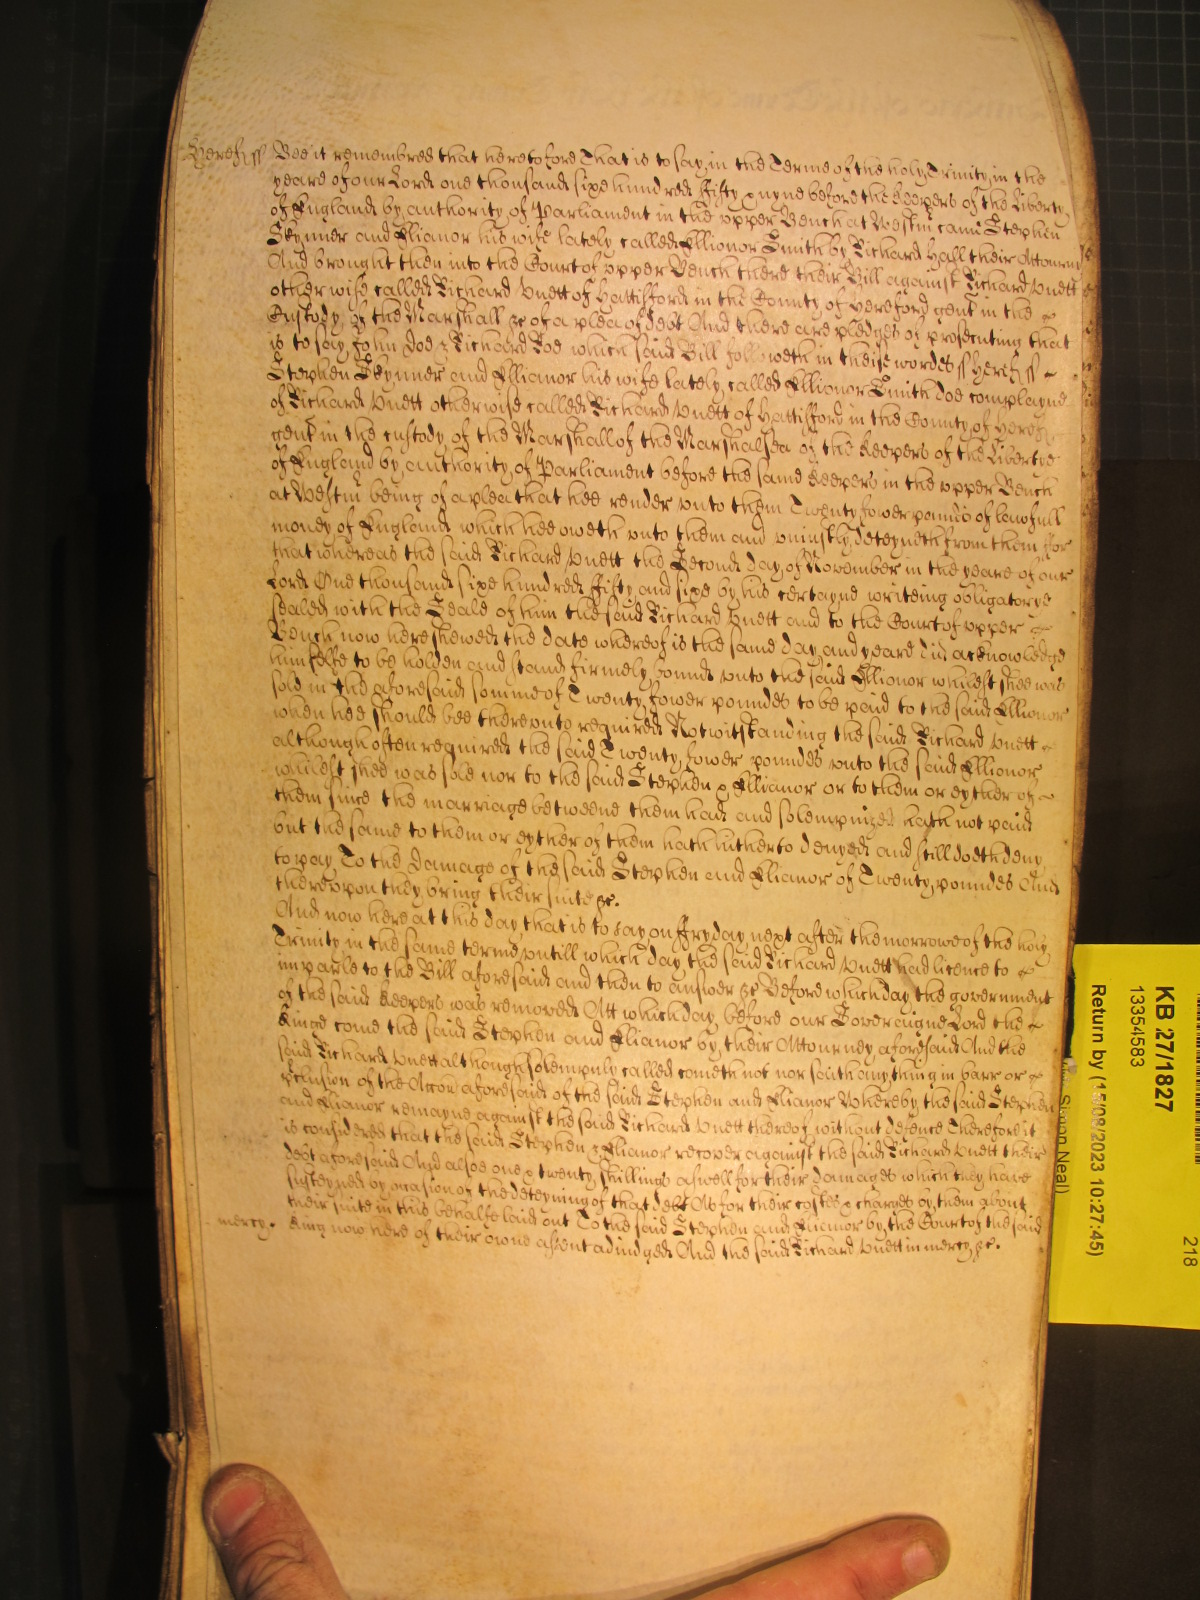 Heref ss Bee it remembred that heretofore That is to say in the Terme of the holy Trinity in the
yeare of our Lord one thousand sixe hundred fifty & nyne before the Keepers of the Liberty
of England by authority of Parliament in the vpper Bench at Westm came Stephen
Skynner and Ellianor his wife lately called Ellionor Smith by Richard Hall their Attourny
And brought then into the Court of vpper Bench there their Bill against Richard Vnett
otherwise called Richard Vnett of Hattifford in the County of Hereford gent in the
Custody of the Marshall &c of a plea of debt And there are pledges of prosecuting that
is to say John Doe & Richard Roe which said Bill followeth in theise wordes ss Heref ss
Stephen Skynner and Ellianor his wife lately called Ellionor Smith doe complayne
of Richard Vnett otherwise called Richard Vnett of Hattifford in the County of Heref
gent in the custody of the Marshall of the Marshalsea of the Keepers of the Libertye
of England by authority of Parliament before the same Keepers in the vpper Bench
at Westm being of a plea that hee render vnto them Twenty fower pounds of lawfull
money of England which hee oweth vnto them and vniustly deteyneth from them for
that whereas the said Richard Vnett the Second day of November in the yeare of our
Lord One thousand sixe hundred fifty and sixe by his certayne writeing obligatorye
sealed with the Seale of him the said Richard Vnett and to the Court of vpper
Bench now here shewed the date whereof is the same day and yeare did acknowledge
himselfe to be holden and stand firmely bound vnto the said Ellionor whilest shee was
sole in the aforesaid somme of Twenty fower poundes to be paid to the said Ellionor
when hee should bee therevnto required Notwitstanding the said Richard Vnett
although often required the said Twenty fower poundes vnto the said Ellionor
whilest shee was sole nor to the said Stephen & Ellianor or to them or eyther of
them since the marriage betweene them had and solempnized hath not paid
but the same to them or eyther of them hath hitherto denyed and still doth deny
to pay To the damage of the said Stephen and Elianor of Twenty poundes And
therevpon they bring their suite &c.
And now here at this day that is to say on Fryday next after the morrowe of the holy
Trinity in the same terme vntill which day the said Richard Vnett had licence to
imparle to the Bill aforesaid and then to answer &c Before which day the government
of the said Keepers was removed Att which day before our Soveraigne Lord the
Kinge come the said Stephen and Elianor by their Attourney aforesaid And the
said Richard Vnett although solempnly called cometh not nor saith any thing in barr or
of the Accon aforesaid of the said Stephen and Elianor Whereby the said Stephen
and Elianor remayne against the said Richard Vnett thereof without defence Therefore it
is considered that the said Stephen & Elianor recover against the said Richard Vnett their
debt aforesaid And alsoe one & twenty shillings aswell for their damages which they have
susteyned by occasion of the deteyning of that debt As for their costes & charges by them about
their suite in this behalfe laid out To the said Stephen and Elianor by the Court of the said
mercy. King now here of their owne assent adiudged And the said Richard Vnett in mercy &c.
KB 27/1827
13354583
Return by (15/08/2023 10:27:45)
Simon Neal)
218